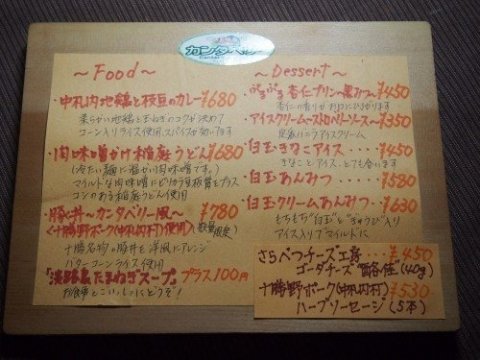 カンタベリー
～Food～
・中札内地鶏と枝豆のカレー¥680
柔らかい地鶏と玉ねぎのコクが決めて
コーン入りライス使用、スパイスが効いてます
・肉味噌かけ稲庭うどん¥680
冷たい麺に温かい肉味噌です。
コシのある稲庭うどん使用
・豚丼～カンタベリー風～¥780
(十勝野ポーク(中札内村)使用)
数量限定
十勝名物の豚丼を洋風にアレンジ
バターコーンライス使用
「淡路島たまねぎスープ」プラス100円
お食事とごいっしょにどうぞ！
～Dessert～
・ぷるぷる杏仁プリン～黒みつ¥450
杏仁の香りがお口にひろがります
・アイスクリーム～ストロベリーソース～¥350
・白玉きなこアイス・・・・¥450
きなことアイス、とても合います
・白玉あんみつ・・・・・¥580
・白玉クリームあんみつ・・¥630
もちもち"白玉"と"ぎゅうひ"入り
アイス入りでマイルドに
さらべつチーズ工房・・¥450
ゴーダチーズ (40g)
十勝野ポーク(中札内村)¥530
ハーブソーセージ(5本)